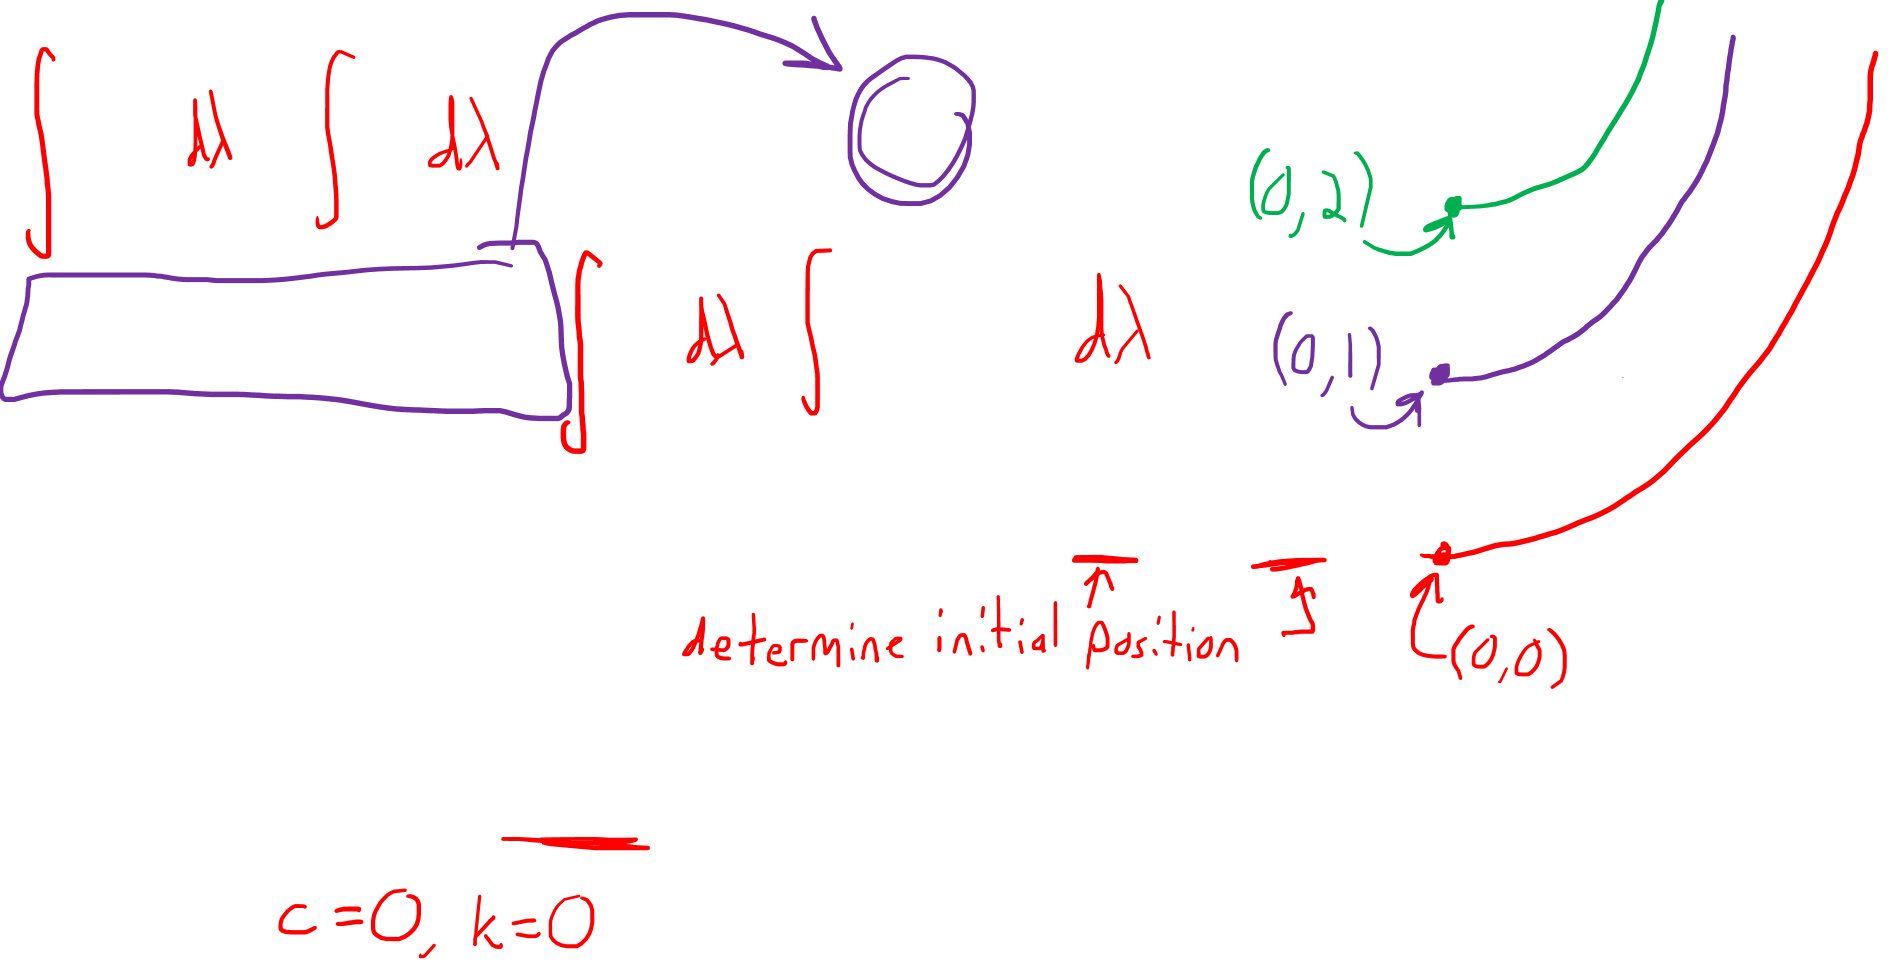 ∫ dλ ∫ dλ
(0,2)
∫ dλ ∫ dλ
(0,1)
determine initial position
(0,0)
c=0, k=0